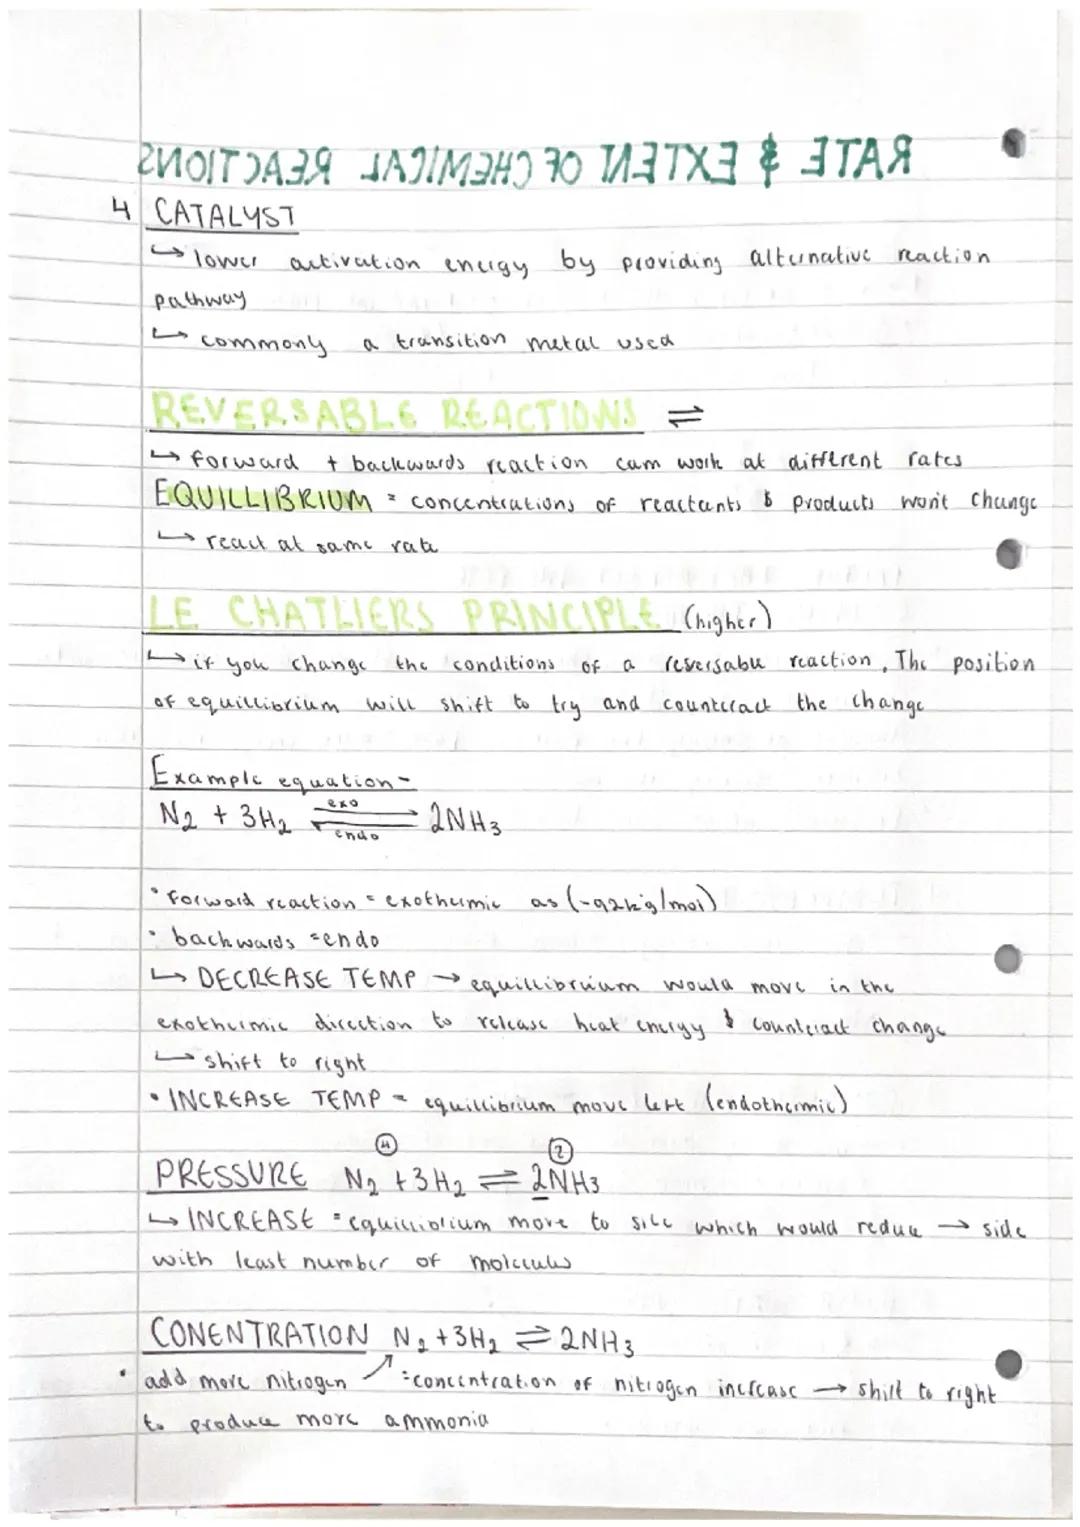 RATE & EXTENT OF CHEMICAL REACTIONS
4 CATALYST
↳ lower activation energy by providing alternative reaction
pathway
↳ commonly a transition metal used
REVERSABLE REACTIONS ⇌
↳ forward + backwards reaction cam work at different rates
EQUILLIBRIUM = concentrations of reactants & products won't change
↳ react at same rate
LE CHATLIERS PRINCIPLE (higher)
↳ if you change the conditions of a reversable reaction, The position
of equillibrium will shift to try and counteract the change
Example equation -
N2 + 3H2 exo ⇌ endo 2NH3
• Forward reaction = exothermic as (-92kg/mol)
• backwards = endo
↳ DECREASE TEMP → equillibruium would move in the
exothermic direction to release heat energy & counteract change
↳ shift to right
• INCREASE TEMP = equillibrium move left (endothermic)
4 2
PRESSURE N2 + 3H2 ⇌ 2NH3
↳ INCREASE = equillibrium move to side which would reduce → side
with least number of molecules
CONENTRATION N2 + 3H2 ⇌ 2NH3
• add more nitrogen ↗ = concentration of nitrogen increase → shift to right
to produce more ammonia